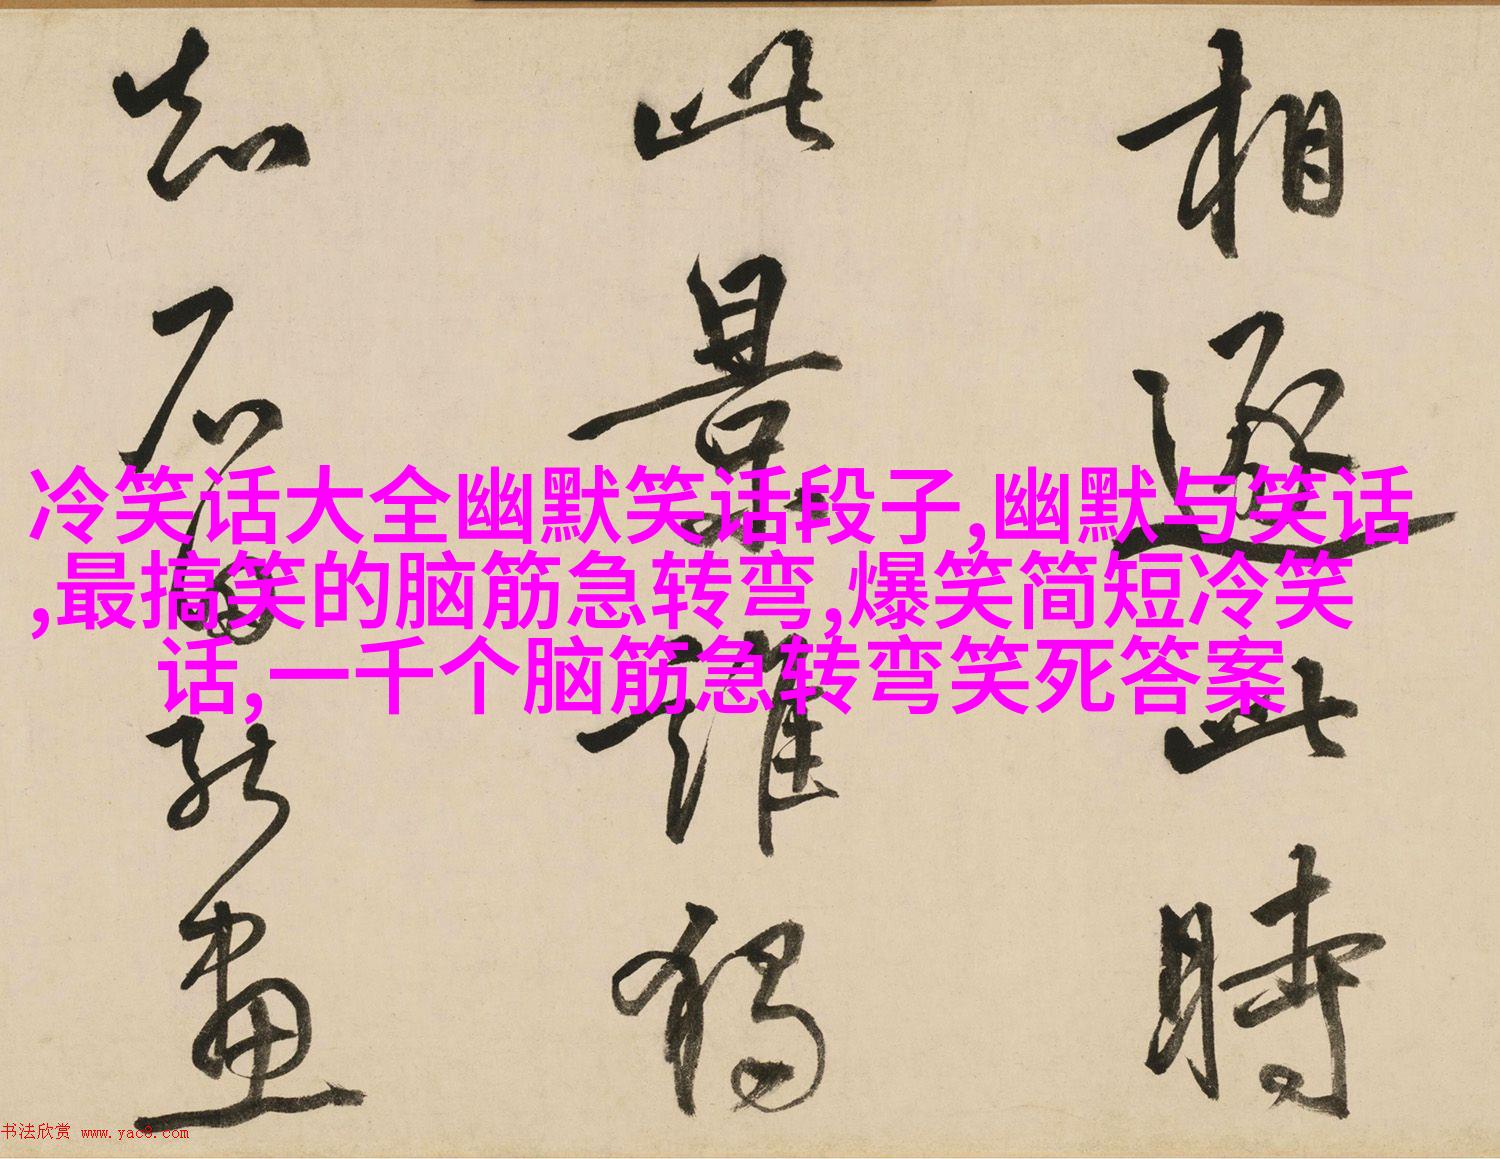 相逐此時
此景誰獨
知石能畫
冷笑话大全幽默笑话段子,幽默与笑话
,最搞笑的脑筋急转弯,爆笑简短冷笑
话,一千个脑筋急转弯笑死答案
书法欣赏 www.yac8.com